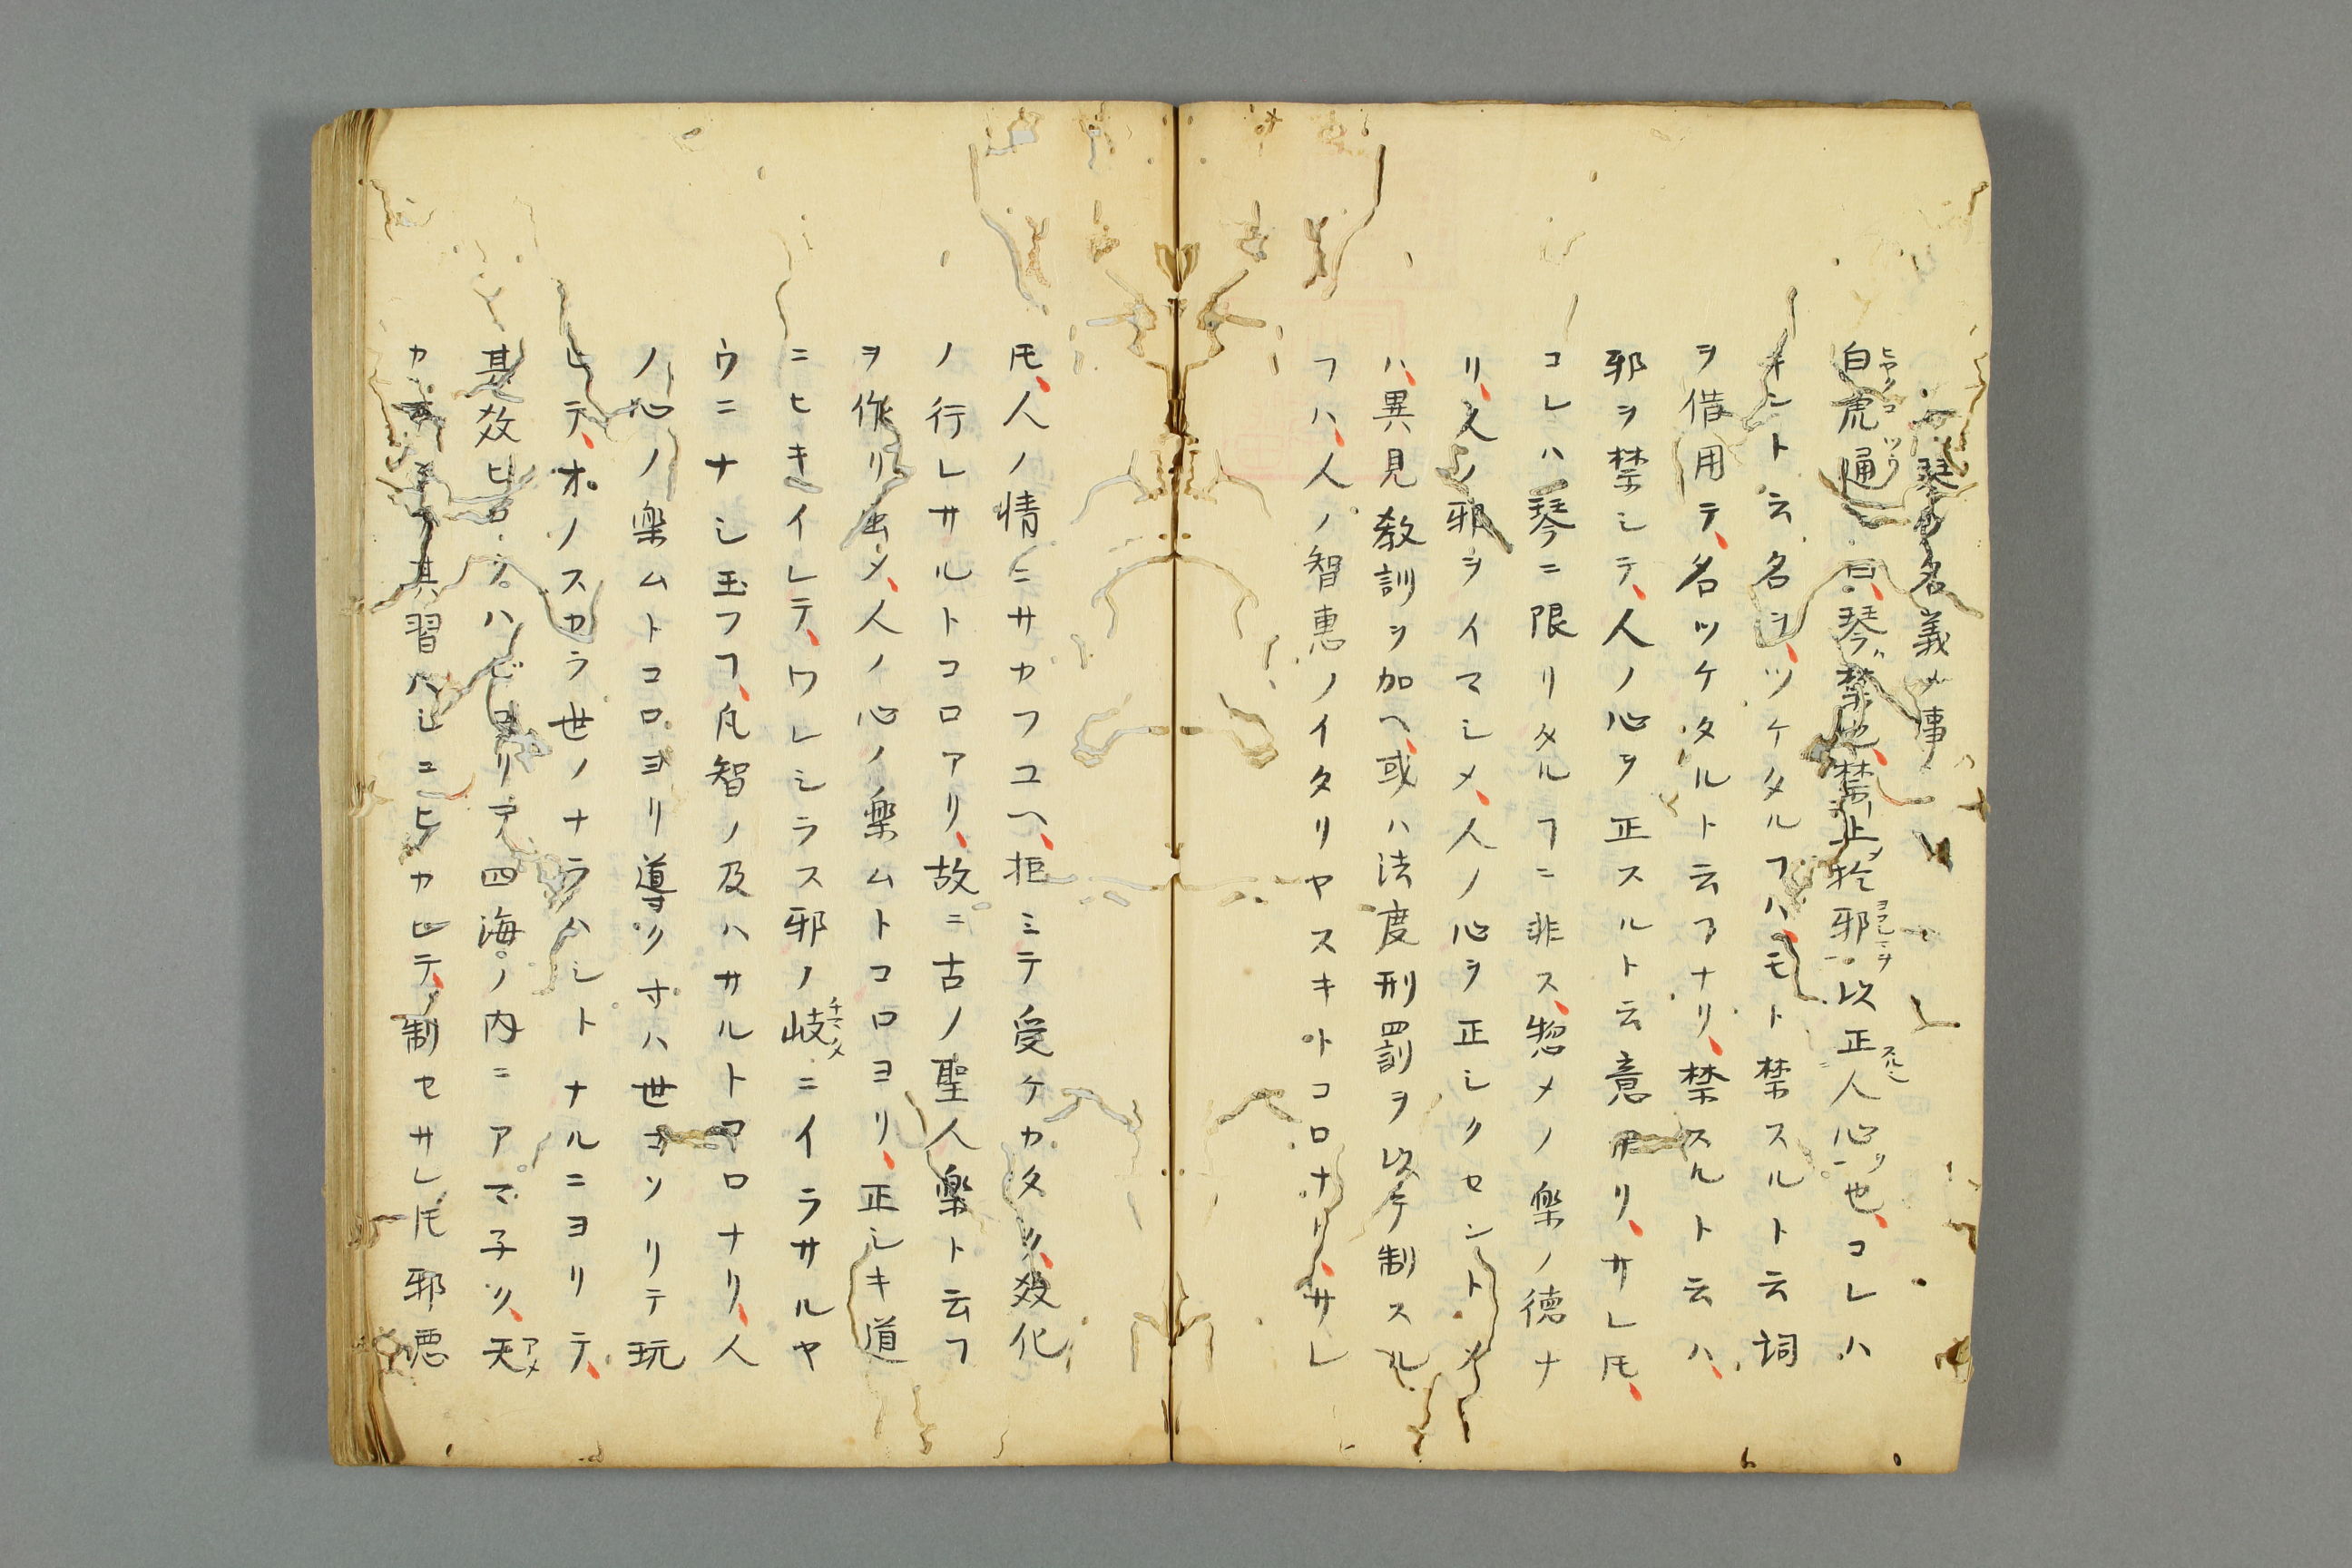 琴ノ名義ノ事
白虎通ニ曰、琴ハ禁也、禁止於邪以正人心也、コレハ
キント云名ヲ、ツケタルヿハ、モト禁スルト云詞
ヲ借用テ、名ツケタルト云ヿナリ、禁スルト云ハ、
邪ヲ禁シテ、人ノ心ヲ正スルト云意ナリ、サレ𪜈、
コレハ琴ニ限リタルヿニ非ス、惣メノ楽ノ徳ナ
リ、人ノ邪ヲイマシメ、人ノ心ヲ正シクセントメ
ハ、異見教訓ヲ加ヘ、或ハ法度刑罰ヲ以テ制スル
ヿハ、人ノ智恵ノイタリヤスキトコロナリ、サレ
𪜈、人ノ情ニサカフユヘ、拒ミテ受ケカタク、教化
ノ行レサルトコロアリ、故ニ古ノ聖人楽ト云ヿ
ヲ作リ出メ、人ノ心ノ楽ムトコロヨリ、正シキ道
ニヒキイレテ、ワレシラス邪ノ岐ニイラサルヤ
ウニナシ玉フヿ、凡智ノ及ハサルトコロナリ、人
ノ心ノ楽ムトコロヨリ導クオハ世コソリテ玩
ヒテ、オノスカラ世ノナラハシトナルニヨリテ、
其效ヒロクハビコリテ四海ノ内ニアマ子ク、天
其習ハシニヒカレテ、制セサレ𪜈邪悪